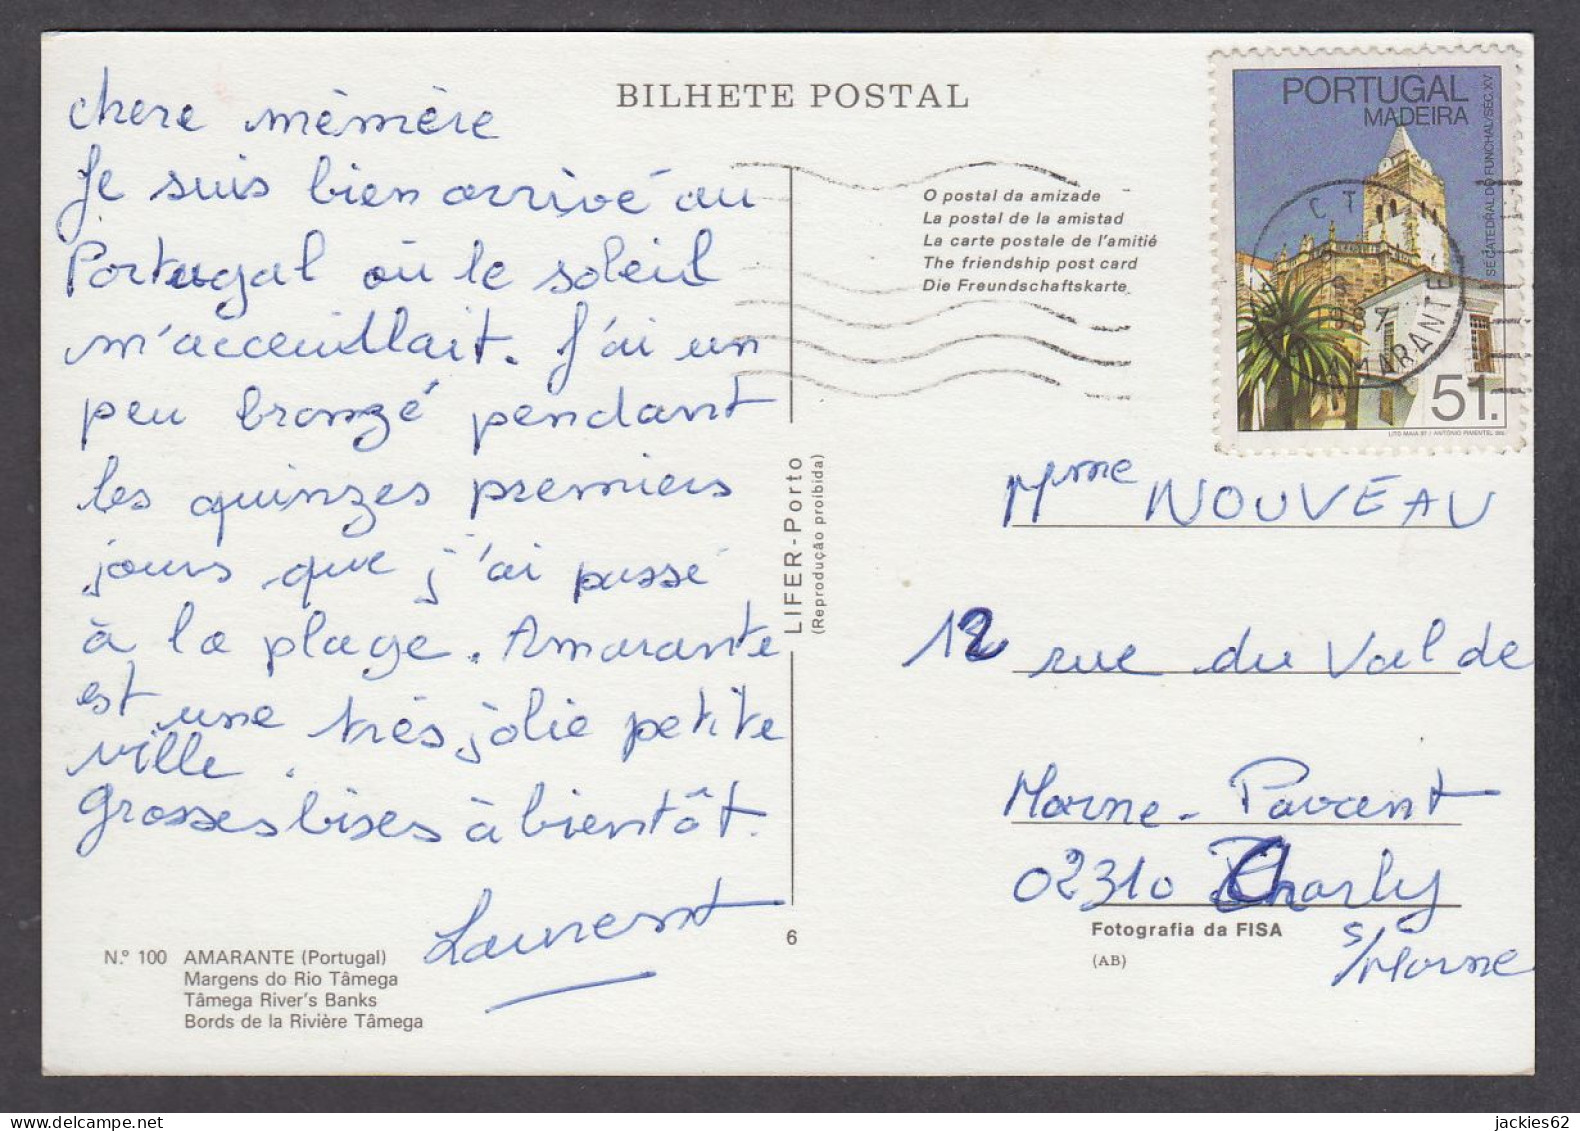 BILHETE POSTAL
chere mèmière
Je suis bien arrivé au
Portugal où le soleil
m'acceuillait. J'ai un
peu bronzé pendant
les quinzes premiers
jours que j'ai passé
à la plage. Amarante
est une très jolie petite
ville.
Grosses bises à bientôt.
Laurent
N.º 100 AMARANTE (Portugal)
Margens do Rio Tâmega
Tâmega River's Banks
Bords de la Rivière Tâmega
O postal da amizade
La postal de la amistad
La carte postale de l'amitié
The friendship post card
Die Freundschaftskarte
LIFER - Porto
(Reprodução proibida)
6
PORTUGAL
MADEIRA
SÉ CATEDRAL DO FUNCHAL/SÉC. XV
51.
LITO MAIA 87 / ANTÓNIO PIMENTEL des.
AMARANTE
Mme NOUVEAU
12 rue du Val de
Marne-Pavant
02310 Charly
s/Marne
Fotografia da FISA
(AB)
delcampe.net
jackies62